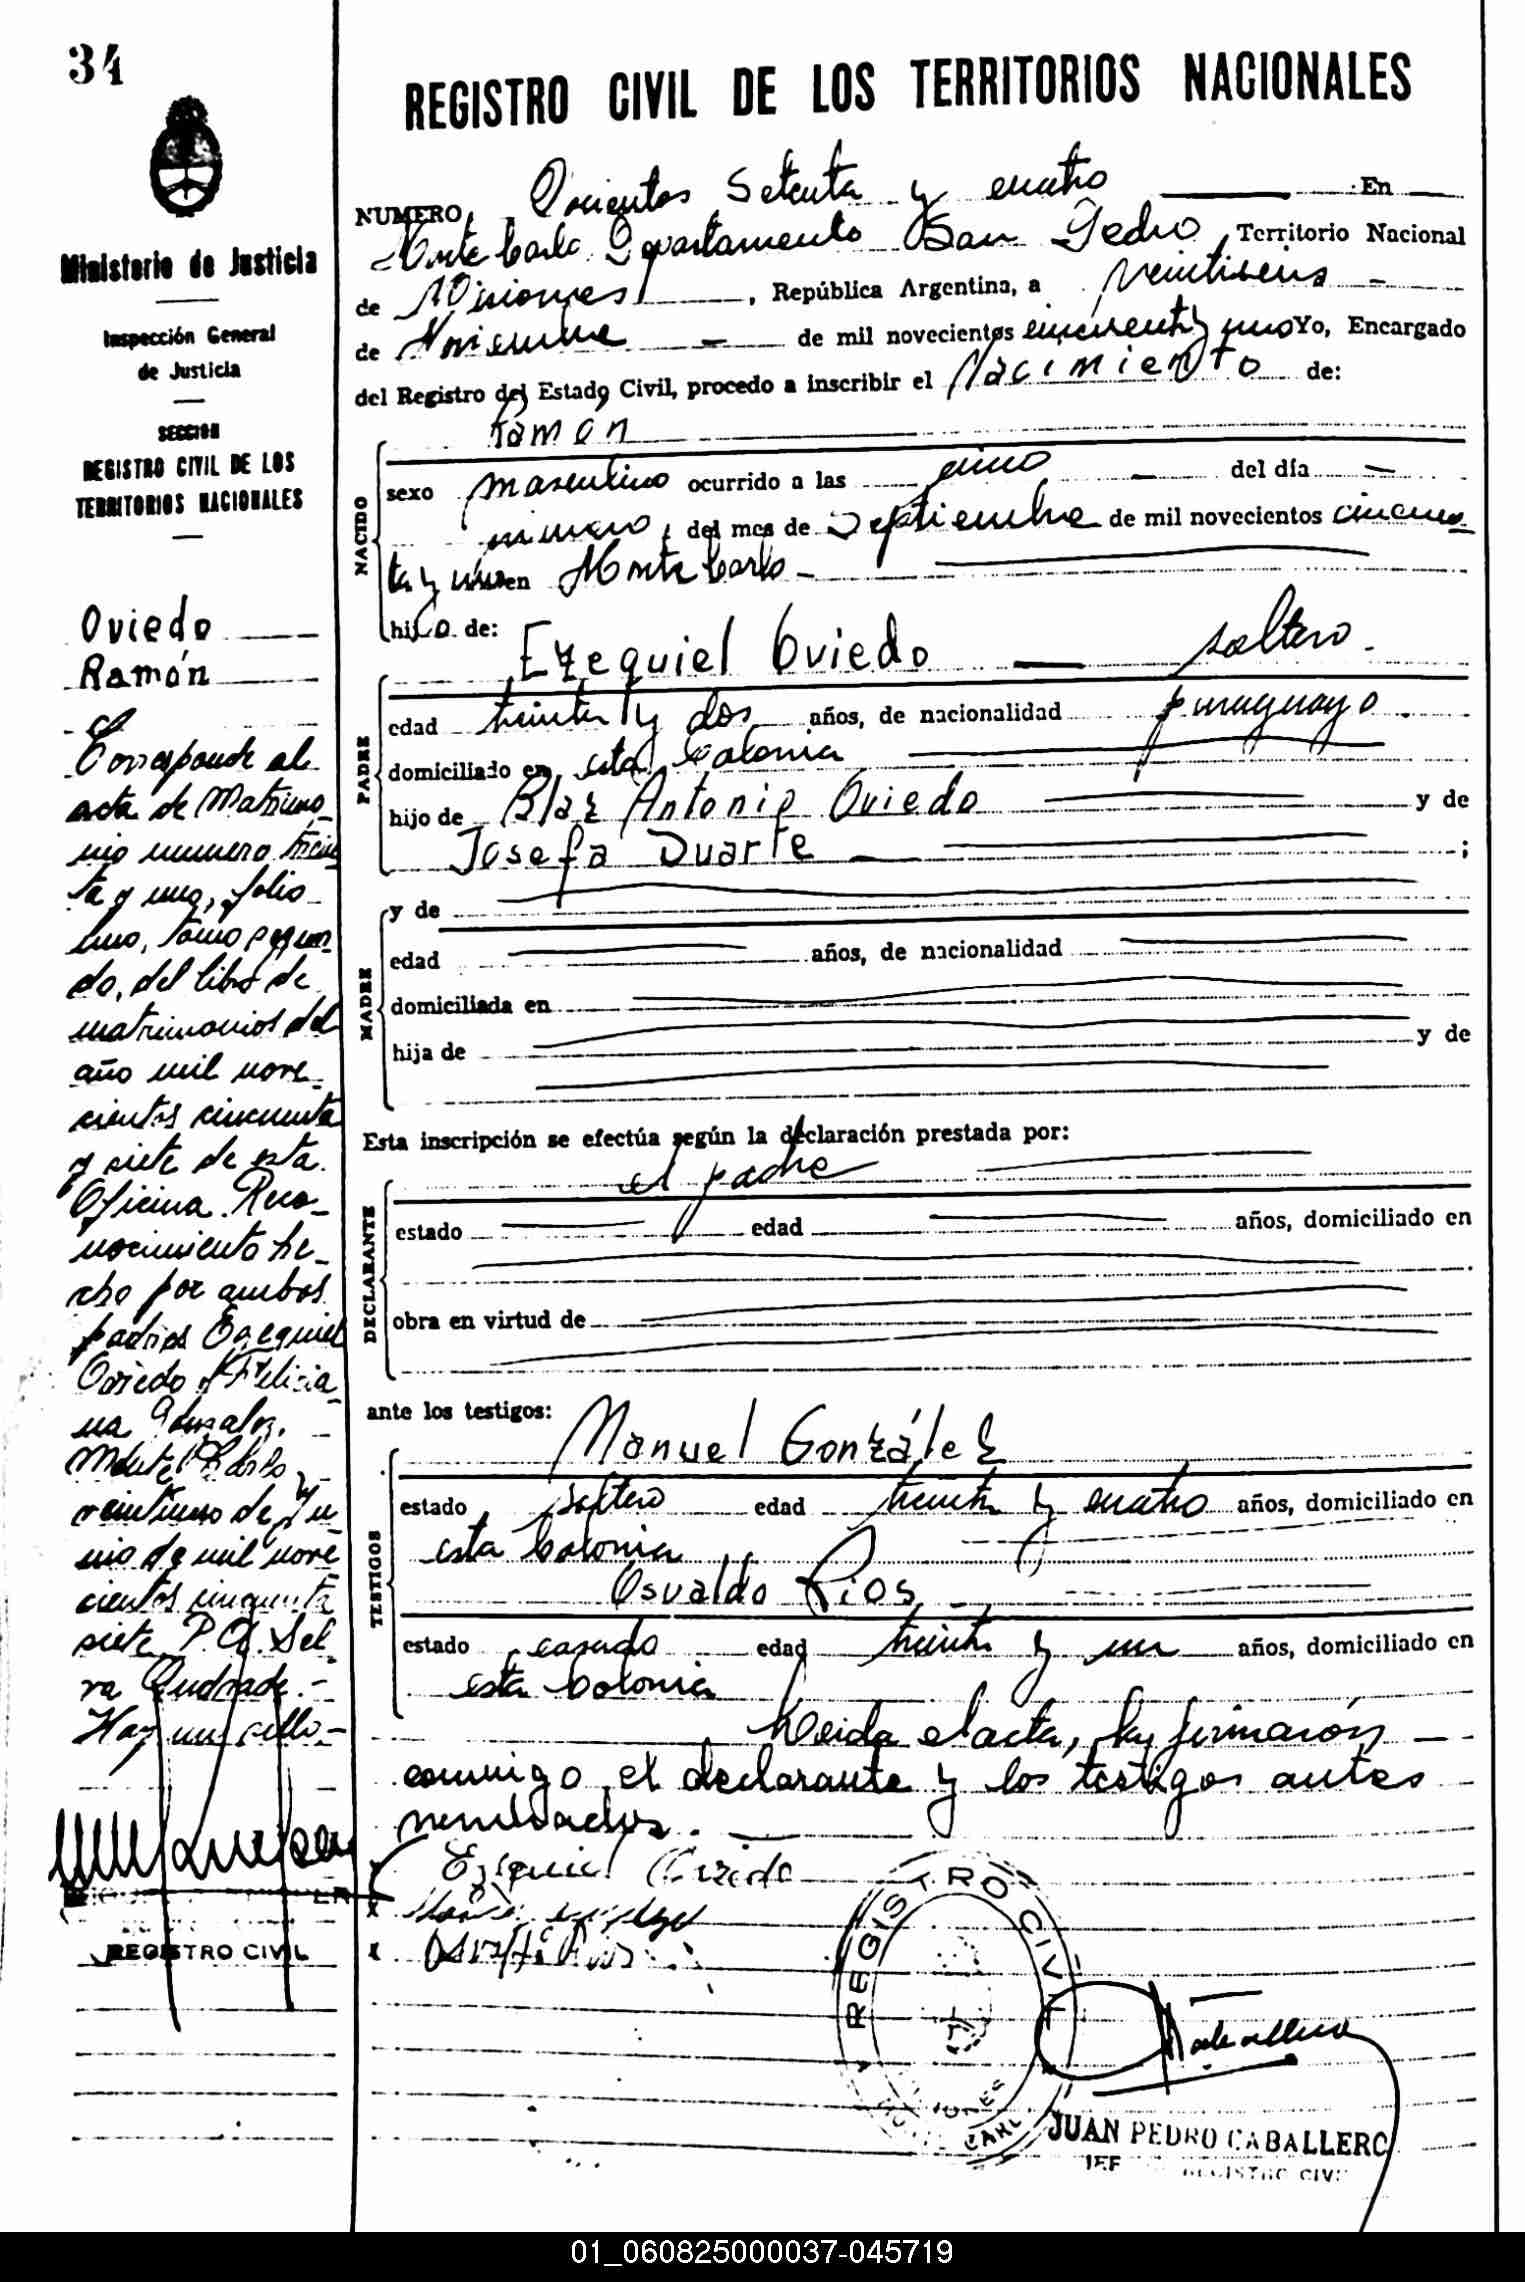 34
REGISTRO CIVIL DE LOS TERRITORIOS NACIONALES
Ministerio de Justicia
Inspección General
de Justicia
SECCION
REGISTRO CIVIL DE LOS
TERRITORIOS NACIONALES
Oviedo
Ramón
Corresponde al
acta de Matrimo-
nio numero trein
ta y uno, folio
uno, tomo segun-
do, del libro de
matrimonios del
año mil nove-
cientos cincuenta
y siete de esta
Oficina. Reco-
nocimiento he-
cho por ambos
padres Ezequiel
Oviedo y Felicia-
na González.
Monte Carlo,
veintiuno de Ju-
nio de mil nove
cientos cinquenta
siete P. A. Sel
va Andrade.-
Hay un sello-
REGISTRO CIVIL
NUMERO Docientos Setenta y cuatro En
Monte Carlo Departamento San Pedro, Territorio Nacional
de Misiones, República Argentina, a veintiseis
de Noviembre de mil novecientos cincuenta y uno Yo, Encargado
del Registro del Estado Civil, procedo a inscribir el Nacimiento de:
Ramón
NACIDO
sexo masculino ocurrido a las cinco del día
primero, del mes de Septiembre de mil novecientos cincuen-
ta y uno en Monte Carlo-
hijo de:
Ezequiel Oviedo soltero.
PADRE
edad treinta y dos años, de nacionalidad paraguayo
domiciliado en esta Colonia
hijo de Blaz Antonio Oviedo y de
Josefa Duarte ;
y de
MADRE
edad años, de nacionalidad
domiciliada en
hija de y de
Esta inscripción se efectúa según la declaración prestada por:
el padre
DECLARANTE
estado edad años, domiciliado en
obra en virtud de
ante los testigos:
Manuel González
TESTIGOS
estado soltero edad treinta y cuatro años, domiciliado en
esta Colonia
Osvaldo Rios
estado casado edad treinta y un años, domiciliado en
esta Colonia
Leida el acta, la firmarón
conmigo el declarante y los testigos antes
nombrados.
Ezequiel Oviedo
REGISTRO CIVIL
MISIONES
JUAN PEDRO CABALLERO
JEF REGISTRO CIVIL
01_060825000037-045719